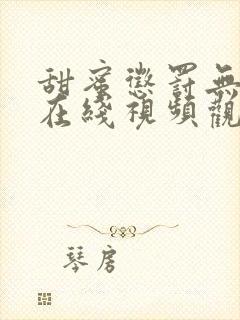 甜蜜懲罰無
在綫視頻觀
琴房